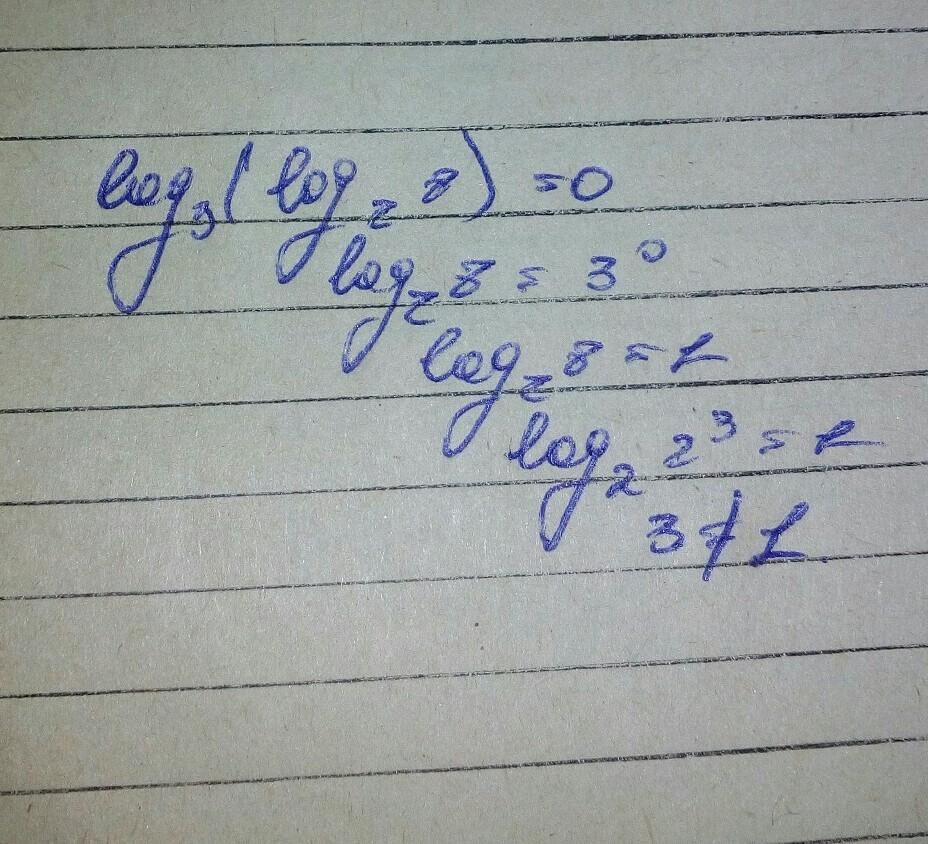 log₃(log₂ 8) = 0
log₂ 8 = 3⁰
log₂ 8 = 1
log₂ 2³ = 1
3 ≠ 1